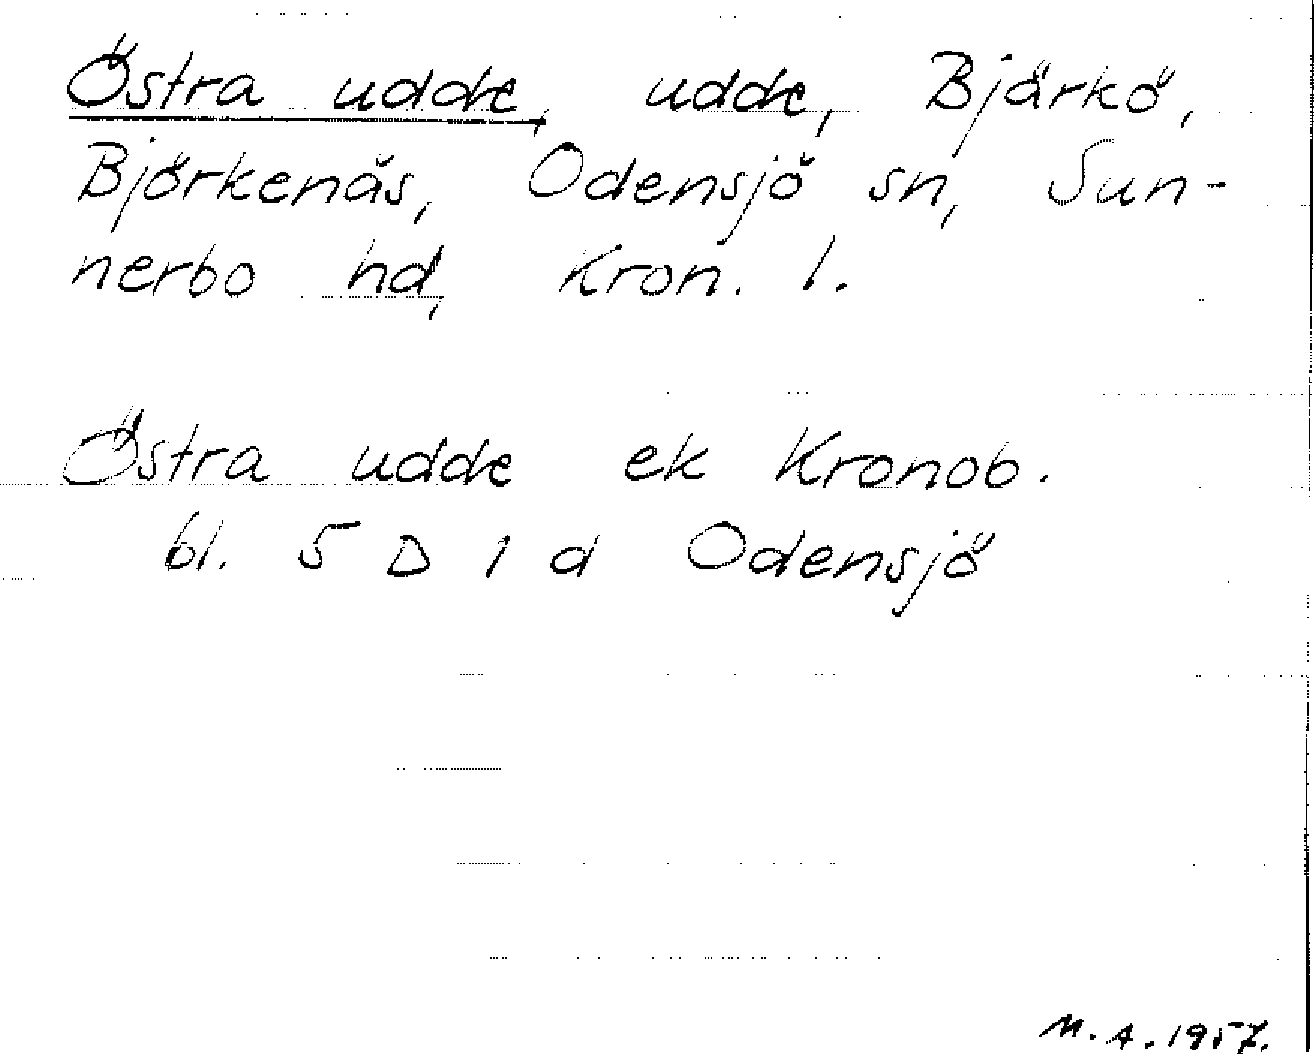 Östra udde, udde, Bjärkö,
Björkenäs, Odensjö sn, Sun-
nerbo hd, Kron. l.
Östra udde ek Kronob.
bl. 5 D 1 d Odensjö
M.A. 1957.